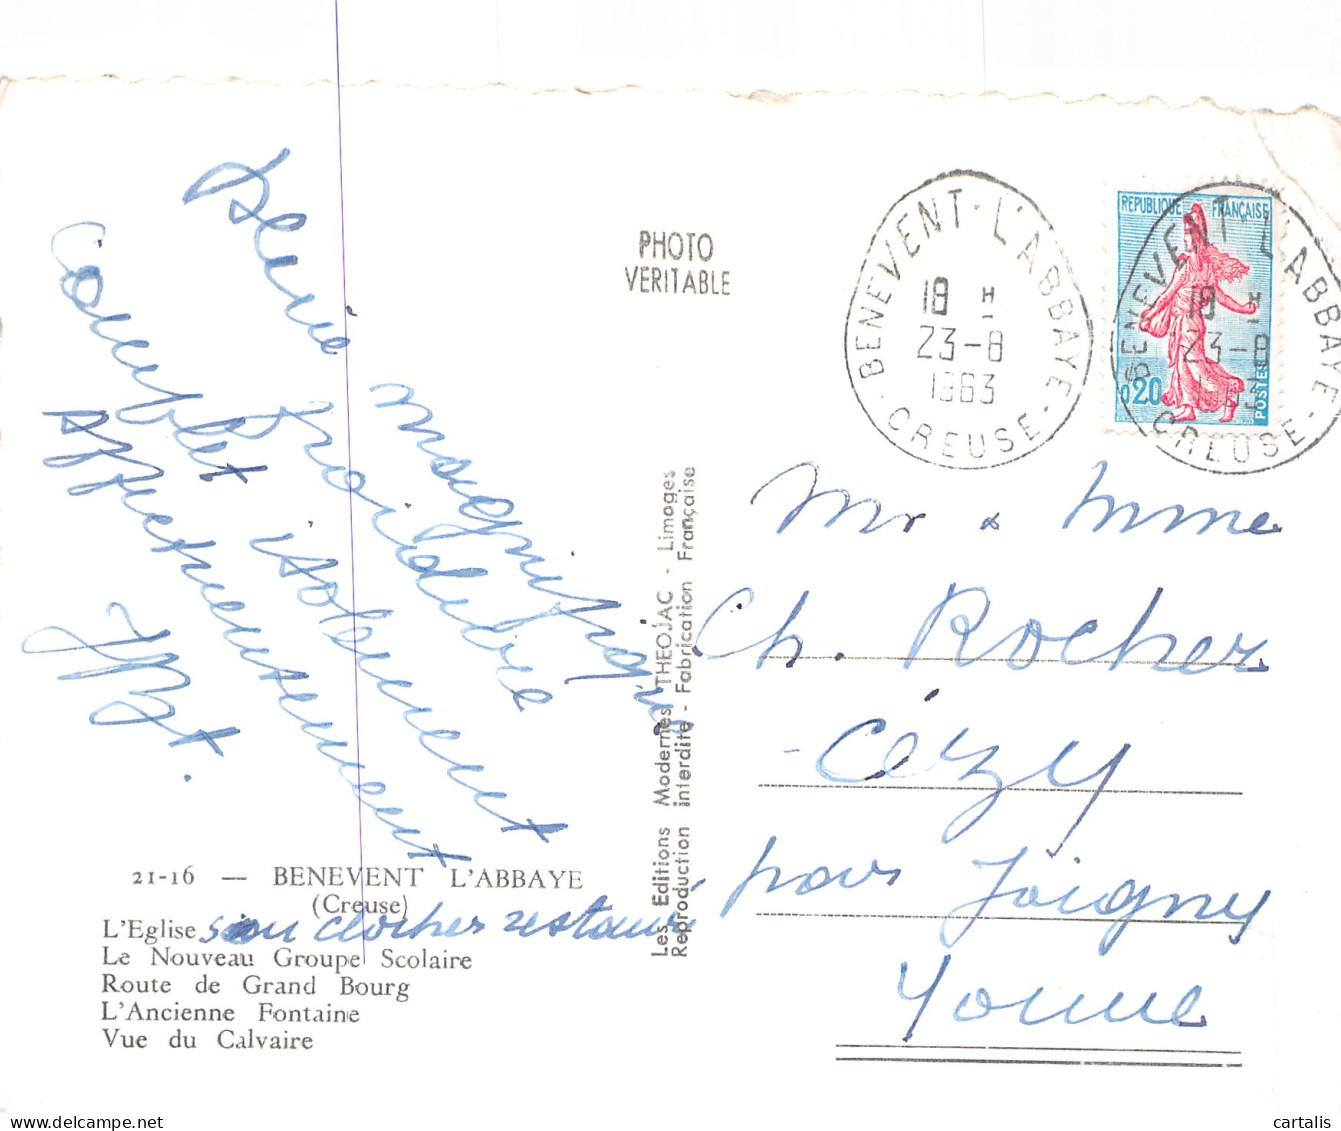 Série magnifique
froidure
complet isolement
Affectueusement
21-16 — BENEVENT L'ABBAYE
(Creuse)
L'Eglise son clocher restauré
Le Nouveau Groupe Scolaire
Route de Grand Bourg
L'Ancienne Fontaine
Vue du Calvaire
PHOTO
VERITABLE
Les Editions Modernes THEOJAC - Limoges
Reproduction interdite - Fabrication Française
BENEVENT-L'ABBAYE
18 H
23-8
1963
CREUSE
REPUBLIQUE FRANÇAISE
0,20
POSTES
BENEVENT L'ABBAYE
18 H
23-8
1963
CREUSE
Mr & Mme
Ch. Rocher
Cézy
par Joigny
Yonne
cartalis
www.delcampe.net